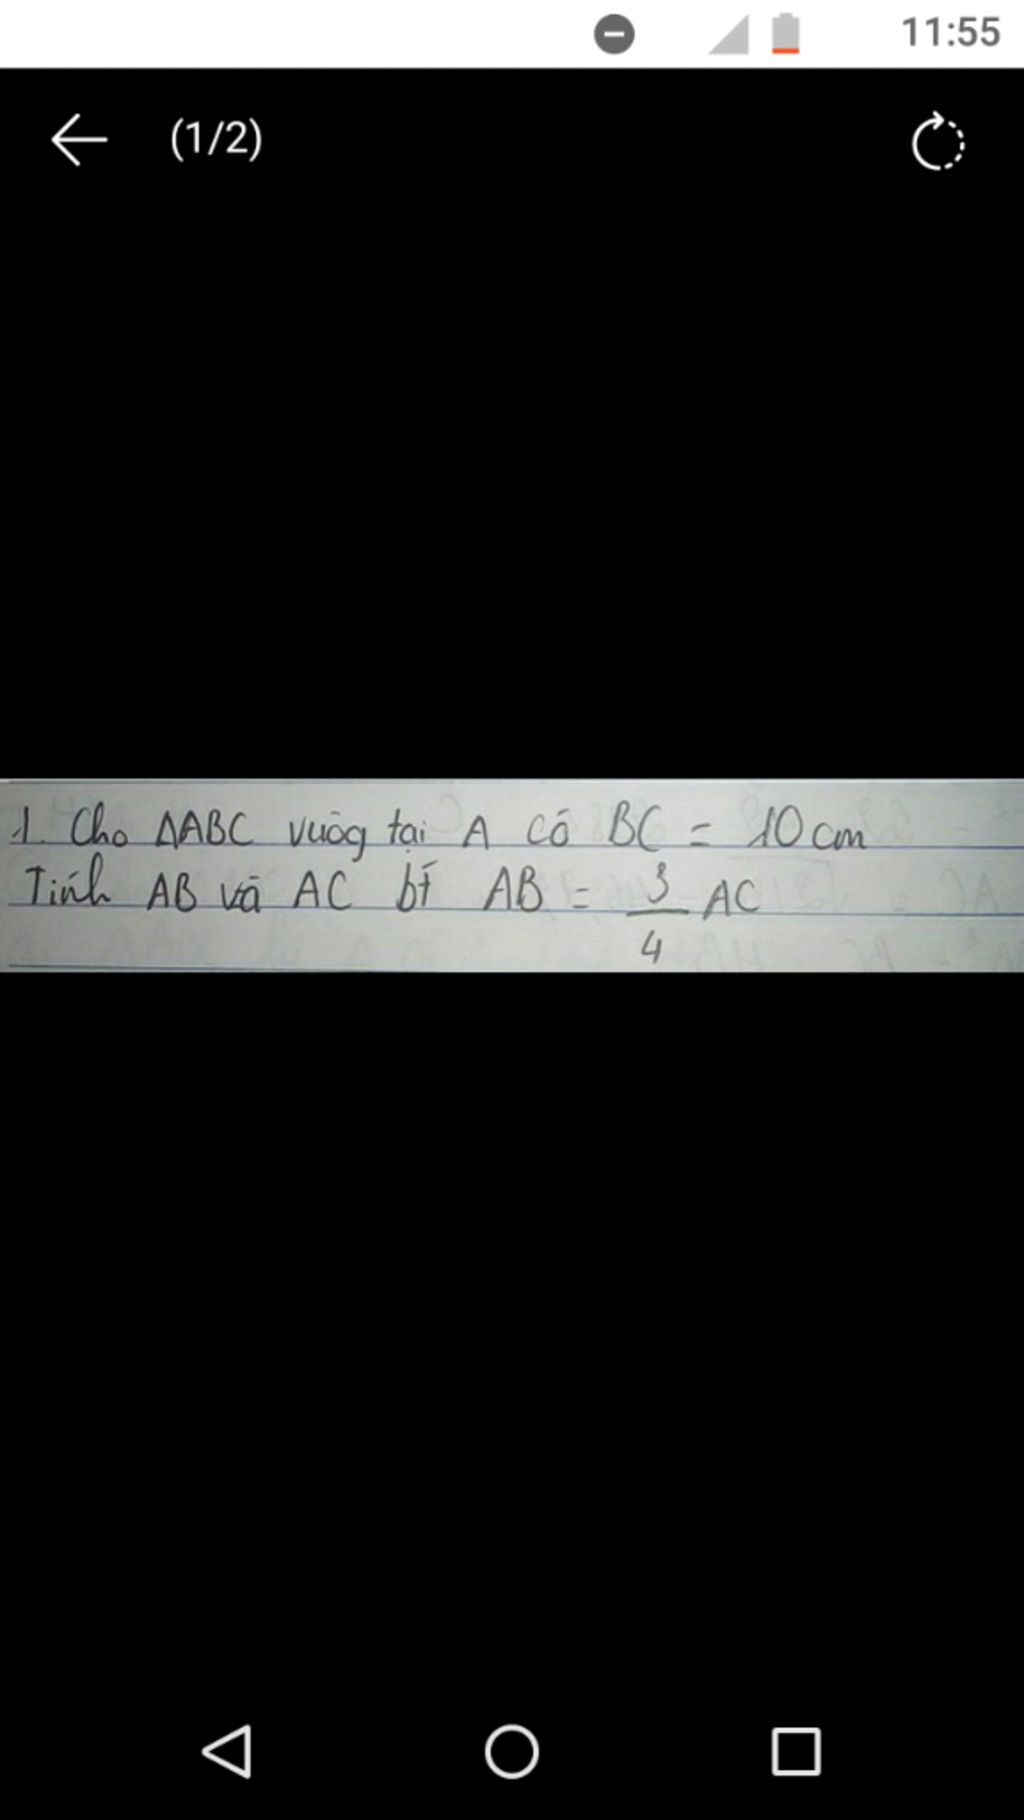 11:55
(1/2)
1. Cho ΔABC vuôg tại A có BC = 10cm
Tính AB và AC bt AB = 3/4 AC